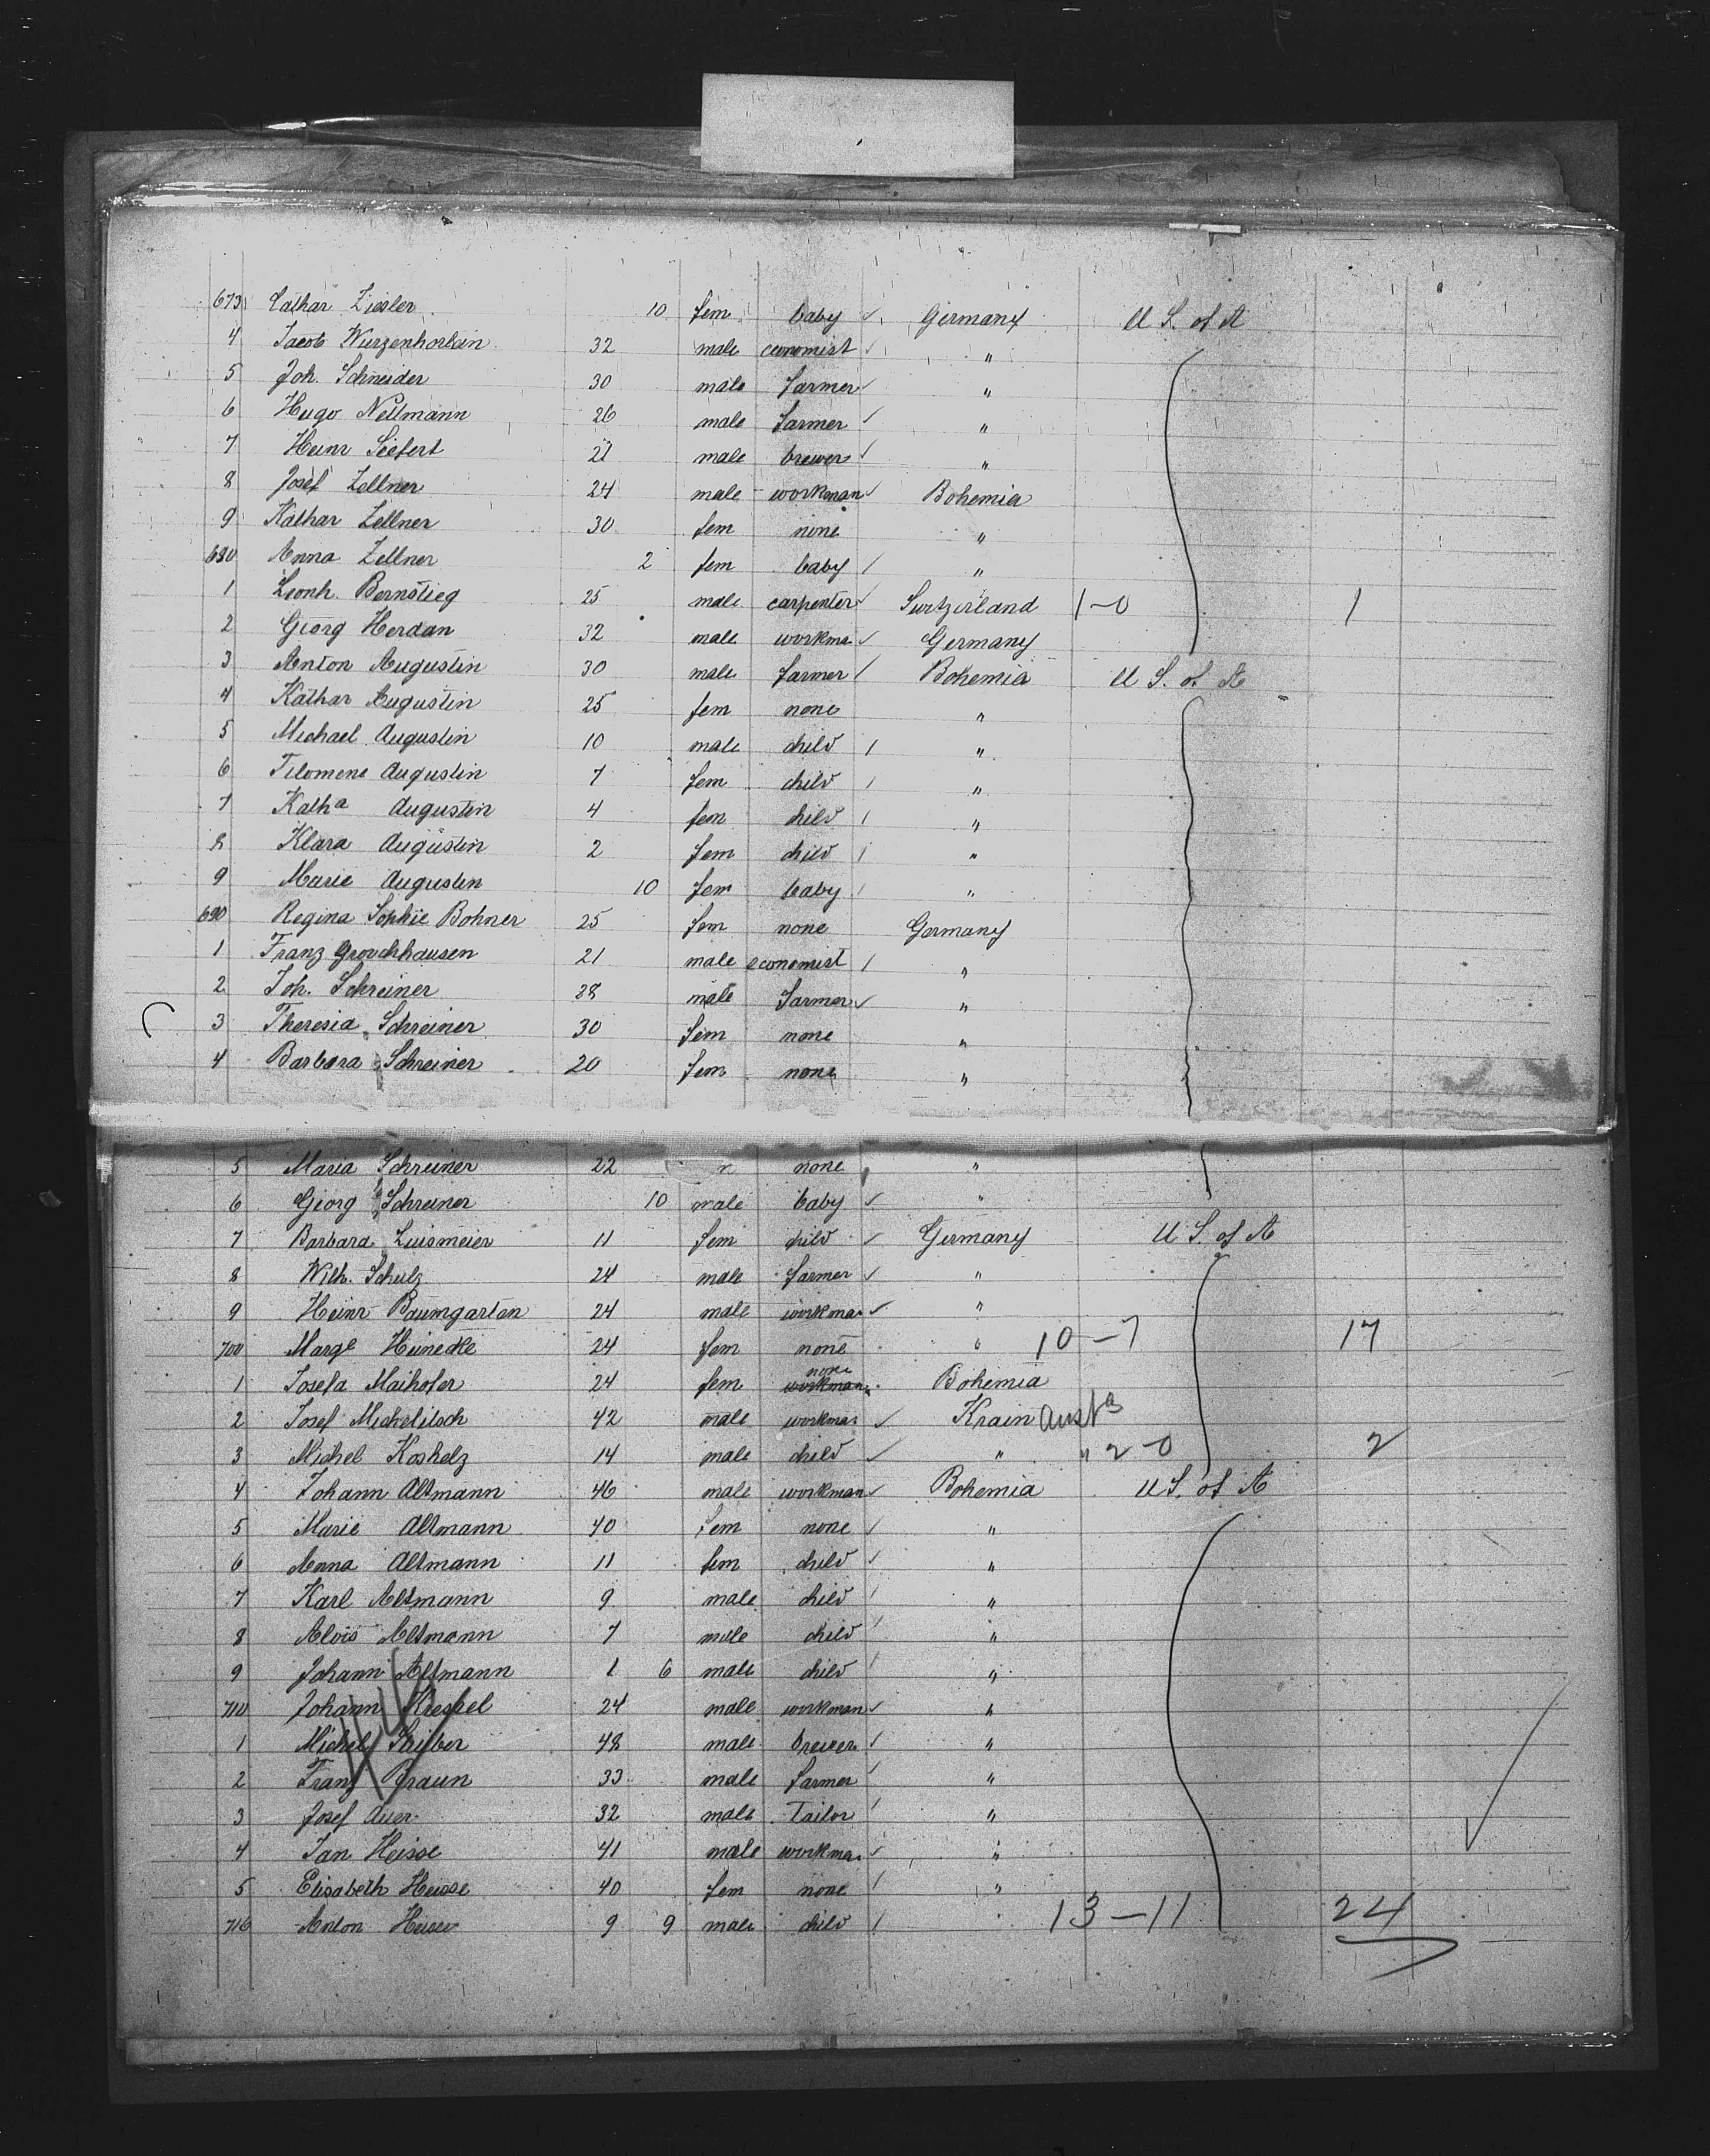 673 Cathar Ziesler 10 fem baby Germany U S. of A
4 Jacob Wurzenhorlein 32 male economist "
5 Joh. Schneider 30 male farmer "
6 Hugo Nellmann 26 male farmer "
7 Heinr Siefert 21 male brewer "
8 Josef Zellner 24 male workman Bohemia
9 Kathar Zellner 30 fem none "
680 Anna Zellner 2 fem baby "
1 Leonh. Bernstieg 25 male carpenter Switzerland 1-0 1
2 Georg Herdan 32 male workma Germany
3 Anton Augustin 30 male farmer Bohemia U S. of A
4 Kathar Augustin 25 fem none "
5 Michael Augustin 10 male child "
6 Filomene Augustin 7 fem child "
7 Katha Augustin 4 fem child "
8 Klara Augustin 2 fem child "
9 Marie Augustin 10 fem baby "
690 Regina Sophie Bohner 25 fem none Germany
1 Franz 21 male economist "
2 Joh. Schreiner 38 male farmer "
3 Theresia Schreiner 30 fem none "
4 Barbara Schreiner 20 fem none "
5 Maria Schreiner 22 none "
6 Georg Schreiner 10 male baby "
7 Barbara Luismeier 11 fem child Germany U S. of A
8 Wilh. Schulz 24 male farmer "
9 Heinr Baumgarten 24 male workman "
700 Marge Heinecke 24 fem none " 10-7 17
none
1 Josefa Maihofer 24 fem workman Bohemia
2 Josef Michelitsch 42 male workman Krain Austa
3 Michel Koskelz 14 male child " " 2-0 2
4 Johann Altmann 46 male workman Bohemia U S. of A
5 Marie Altmann 40 fem none "
6 Anna Altmann 11 fem child "
7 Karl Altmann 9 male child "
8 Alois Altmann 7 male child "
9 Johann Altmann 1 6 male child "
710 Johann Kreskel 24 male workman "
1 Michel 48 male brewer "
2 Franz Braun 33 male farmer "
3 Josef Auer 32 male Tailor "
4 Jan Heisse 41 male workman "
5 Elisabeth Heisse 40 fem none "
716 Anton Heisse 9 9 male child 13-11 24